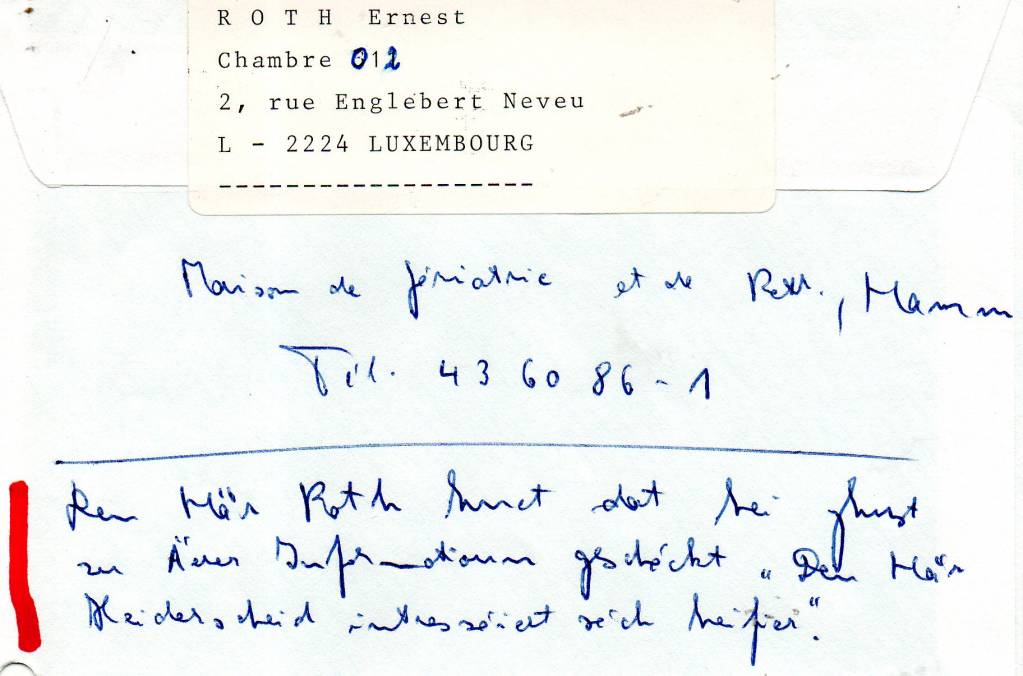 R O T H Ernest
Chambre 012
2, rue Englebert Neveu
L - 2224 LUXEMBOURG
-------------------
Maison de Gériatrie et de Rétr., Hamm
Tél. 43 60 86 - 1
Den Här Roth huet dat hei
zu Ärer Informatioun geschéckt „Den Här
Heiderscheid intresséiert sech heifier“.